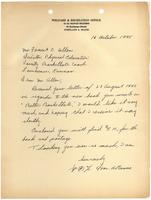 WELFARE & RECREATION OFFICE
PORTLAND 3, MAINE
16 October 1945
Mr Forrest C. Allen
Director Physical Education
Varsity Basketball Coach
Lawrence, Kansas
Dear Mr Allen
Received your letter of 27 August 1945
in regards to the new book you wrote in
"Better Basketball", I would like it very
much and hoping that I receive it very
shortly.
Enclosed you will find $ for the
book and postage.
Thanking you very much, I am.
Sincerely